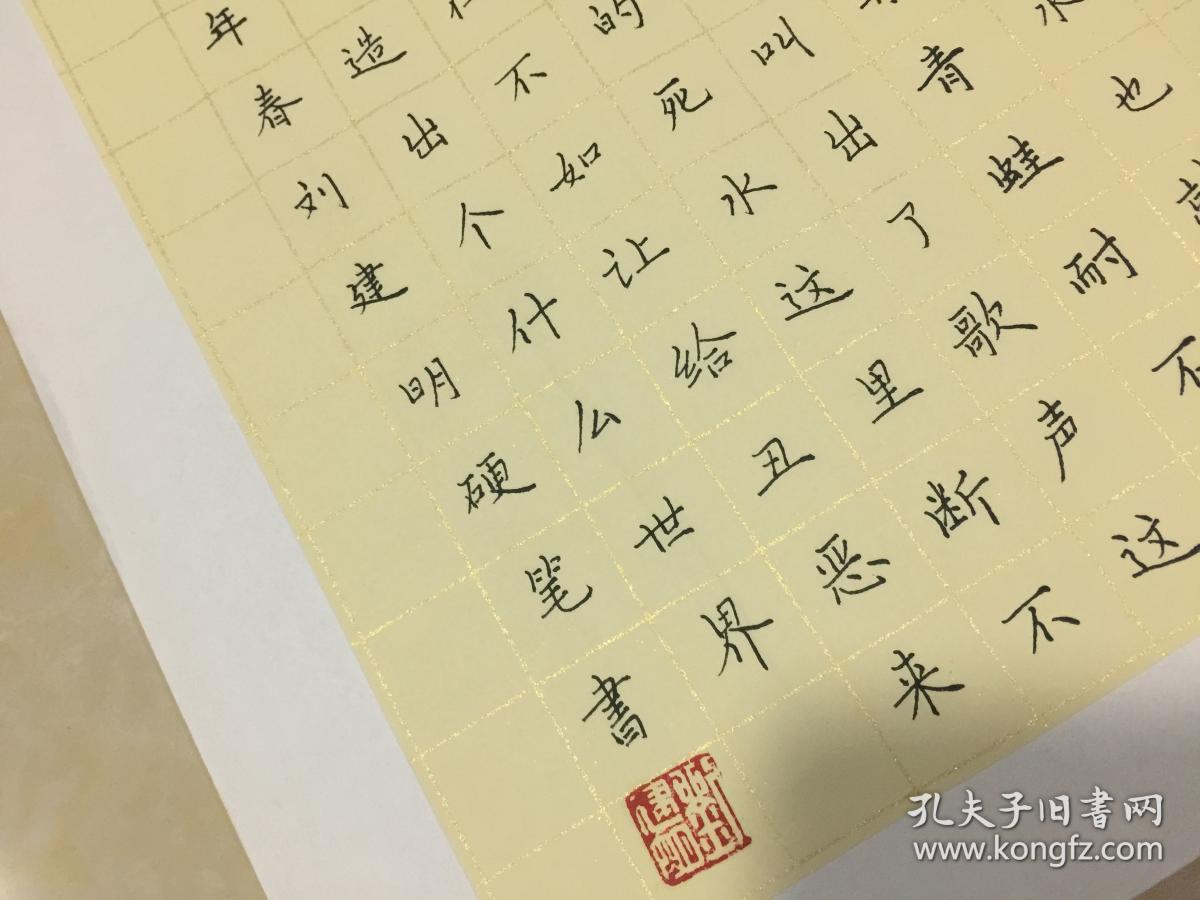 也
青蛙耐不
叫出了歌声这
的死水这里断不
不如让给丑恶来
造出个什么世界
年春刘建明硬笔書
孔夫子旧书网
www.kongfz.com